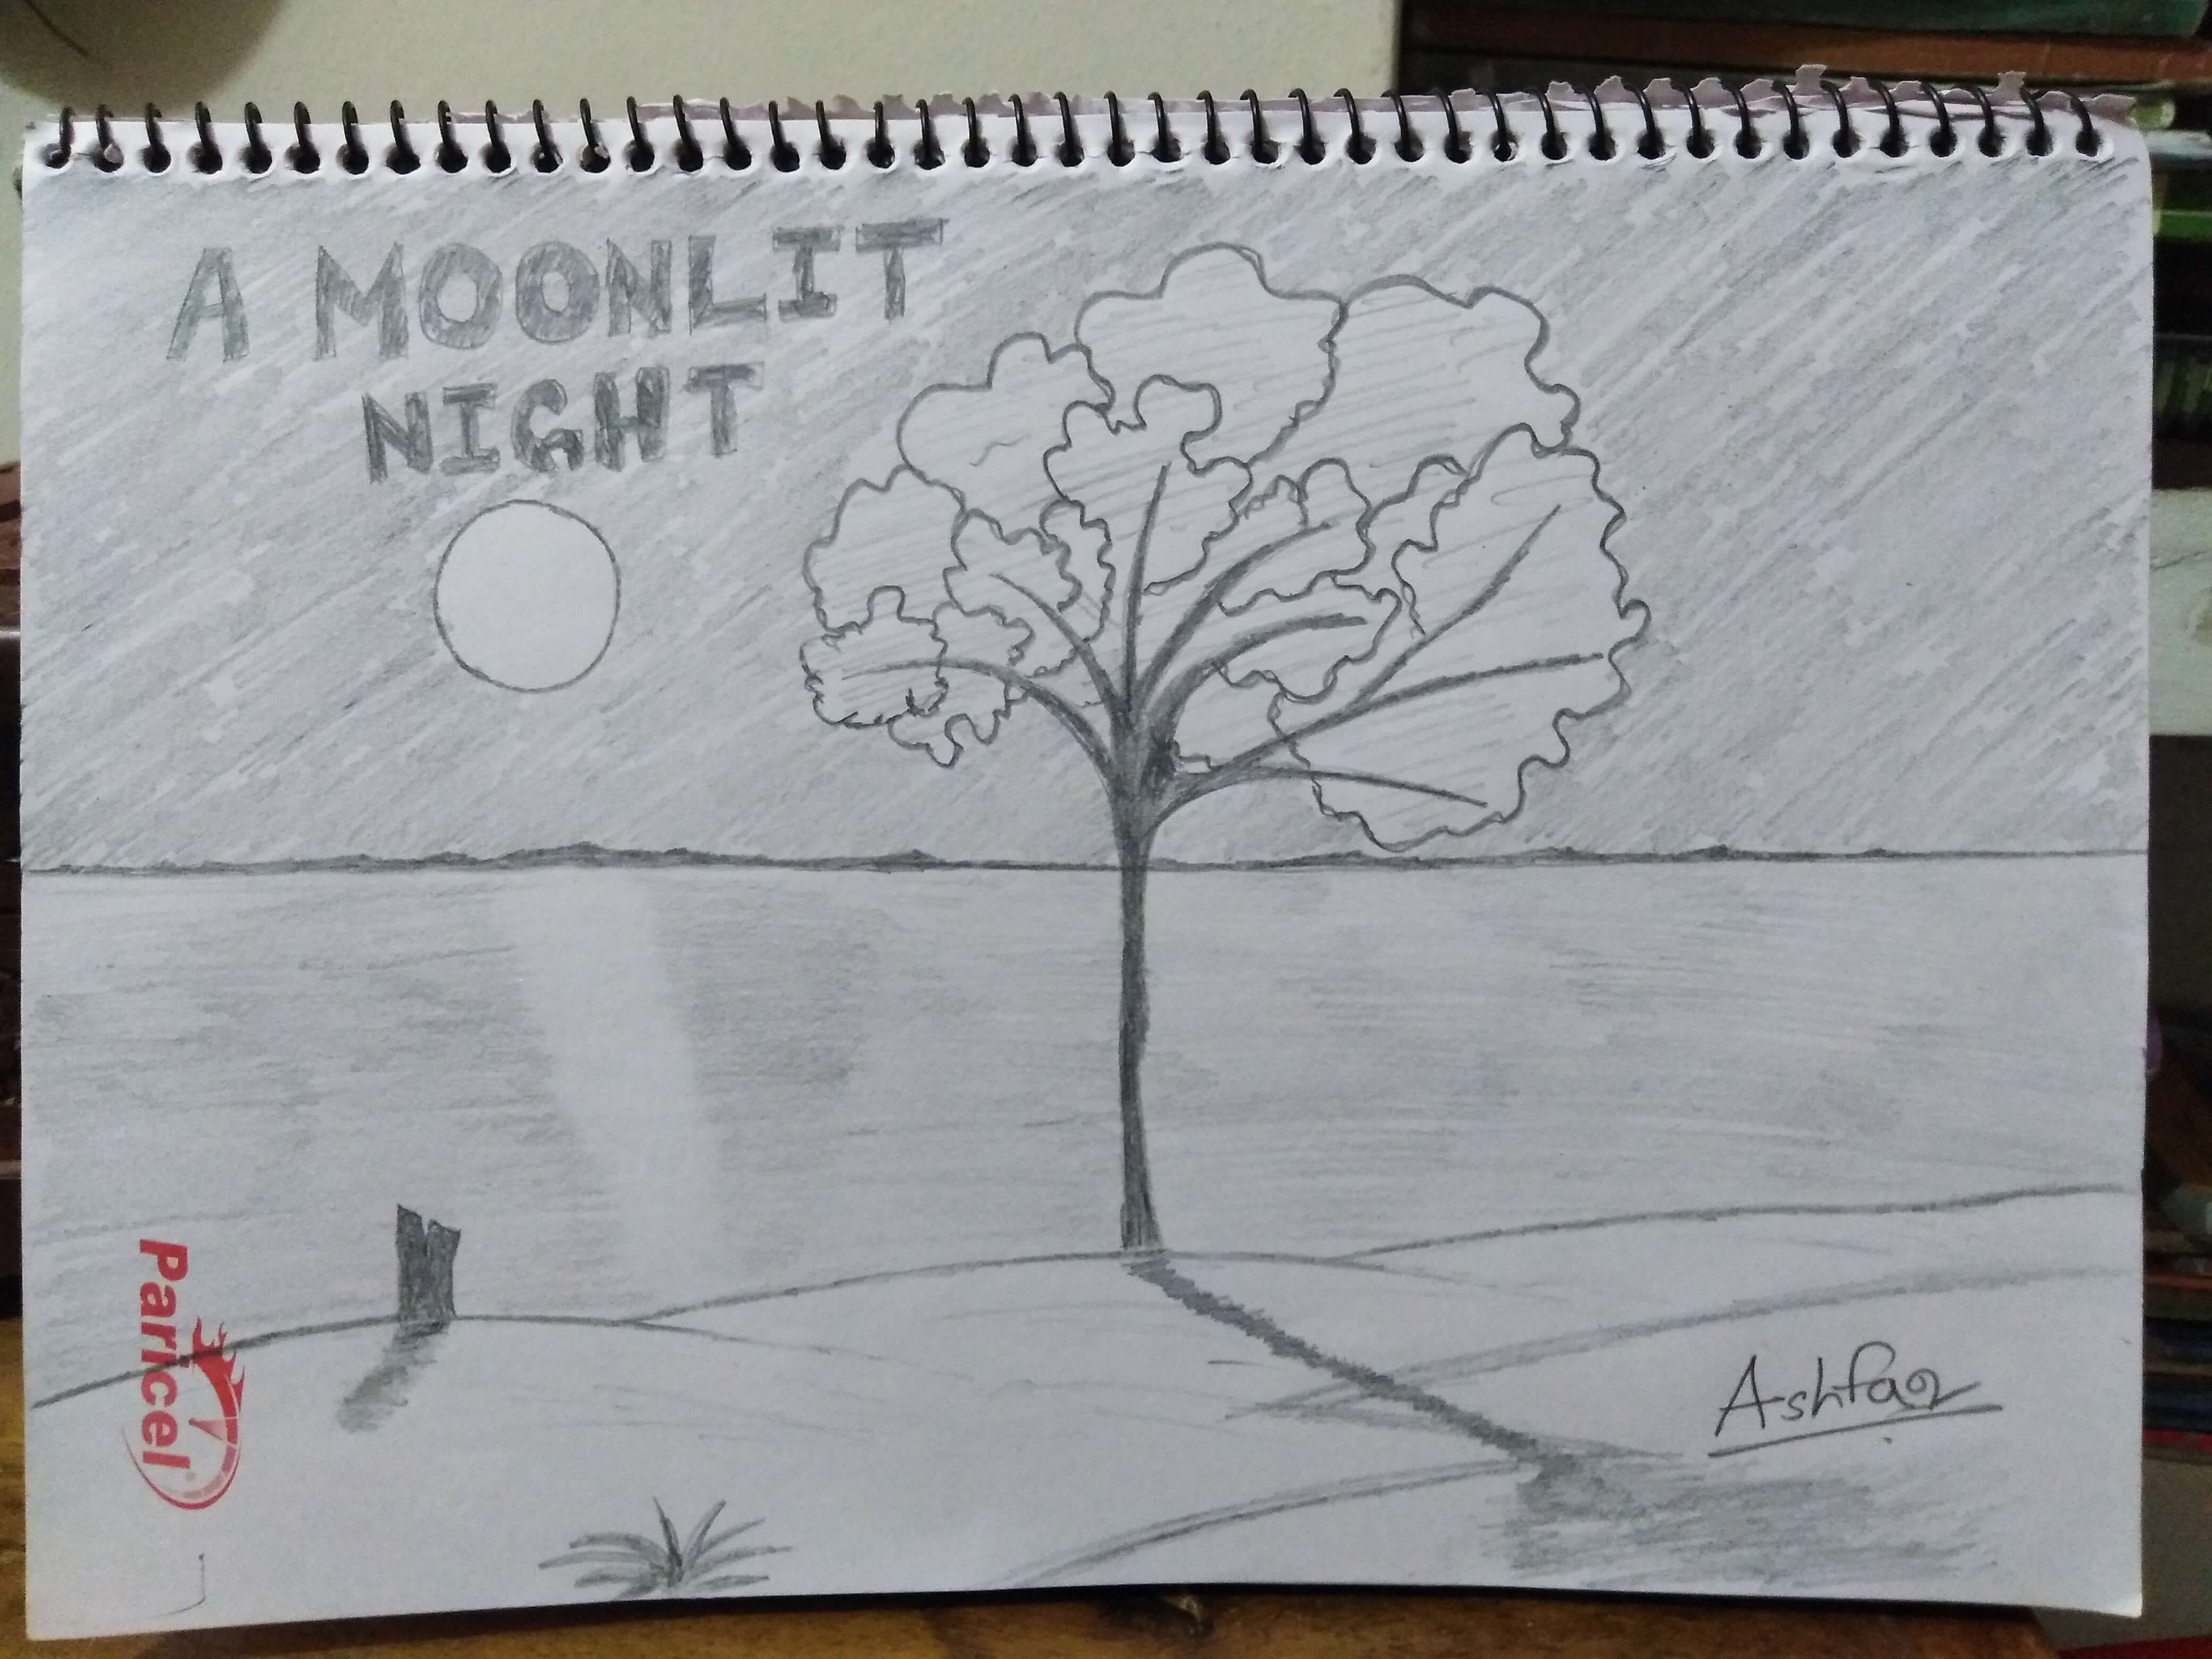 A MOONLIT
NIGHT
Paricel
Ashfaq